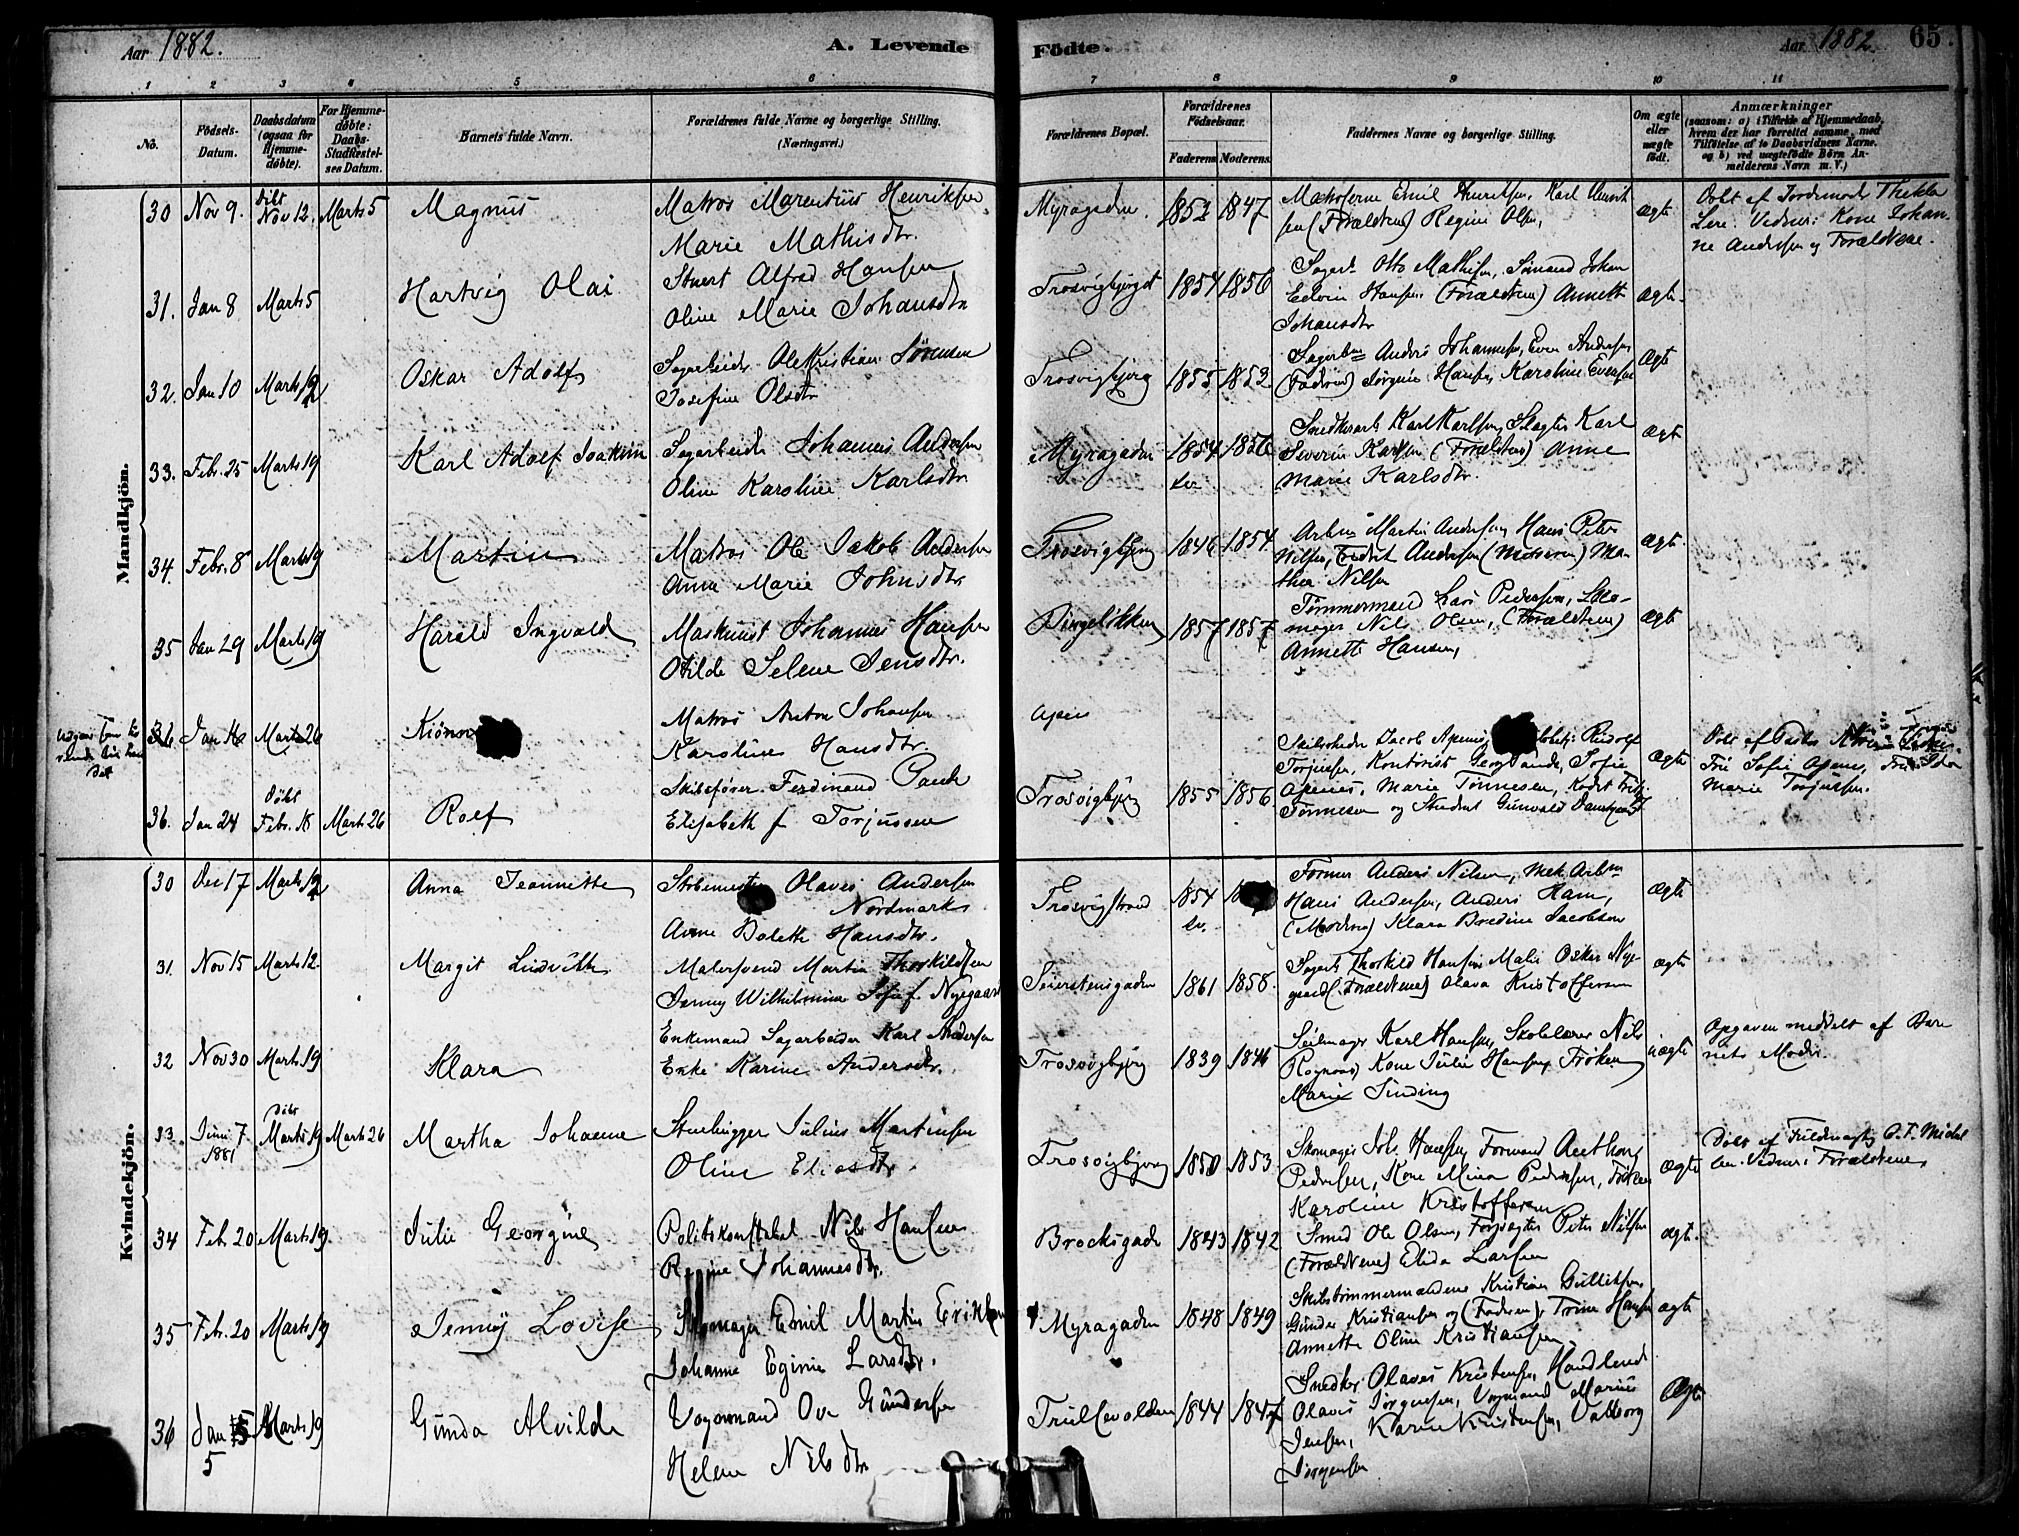 Aar 1882.
A. Levende Födte.
Aar 1882
65.
1 2 3 4 5 6 7 8 9 10 11
No.
Födsels-Datum.
Daabsdatum (ogsaa for Hjemme-döbte).
For Hjemme-döbte: Daabs-Stadfæstel-ses Datum.
Barnets fulde Navn.
Forældrenes fulde Navne og borgerlige Stilling.
(Næringsvei.)
Forældrenes Bopæl.
Forældrenes Födselsaar.
Faderens Moderens
Faddernes Navne og borgerlige Stilling.
Om ægte eller uægte födt.
Anmærkninger
(saasom: a) i Tilfælde af Hjemmedaab,
hvem der har forrettet samme, med
Tilföielse af to Daabsvidners Navne,
og b) ved uægtefödte Börn An-
melderens Navn m. V.)
Mandkjön.
30 Nov 9. döbt Nov 12. Marts 5 Magnus
Matros Marentius Henriksen
Marie Mathisdtr.
Myragaden. 1852 1847
Matroserne Emil Henriksen, Karl Henrik
sen (Forældrene) Regine Olsen,
ægte
Döbt af Jordemoder Thekla
Lere. Vidner: Kone Johan-
ne Andersen og Forældrene.
31. Jan 8 Marts 5 Hartvig Olai
Stuert Alfred Hansen
Oline Marie Johansdtr
Trosvigbjerget 1854 1856
Sagarb. Otto Mathisen, Sömand Johan
Edvin Hansen. (Forældrene) Annette
Johansdtr
ægte.
32. Jan 10 Marts 12 Oskar Adolf
Sagarbeider Ole Kristian Sörensen
Josefine Olsdtr
Trosvigbjerg 1855 1852.
Sagarb. Anders Johannesen, Even Andersen
(Faderen) Jörgine Hansen, Karoline Evensen
ægte
33. Febr. 25 Marts 19 Karl Adolf Joakim
Sagarbeider Johannes Andersen
Oline Karoline Karlsdtr
Myragaden 1854 sv. 1856
Snedkerarb Karl Karlsen, Slagter Karl
Severin Karlsen (Forældrene) Anne
Marie Karlsdtr.
ægte
34. Febr. 8 Marts 19 Martin
Matros Ole Jakob Andersen
Anna Marie Johnsdtr
Trosvigbjerg 1846 1854.
Arbm Martin Andersen, Hans Peter
Nilsen, Fredrik Andersen (Moderen) Ma-
thea Nilsen
ægte.
35 Jan 29 Marts 19 Harald Ingvald
Maskinist Johannes Hansen
Otilde Selene Jensdtr.
1857 1857
Tömmermand Lars Pedersen,
mager Nils Olsen, (Forældrene)
Annette Hansen,
ægte
36 Jan Marts 26
Matros Anton Johansen
Karoline Hansdtr.
36. Jan 24 Döbt Febr. 18 Marts 26 Rolf
Skibsförer Ferdinand
Elisabeth f Torjussen
Trosvigbjerg 1855 1856.
Skibsrheder Jacob Apenes, Rudolf
Torjussen, Kontorist Georg Sofie
Apenes, Marie Tönnesen, Kadet
Tönnesen og Student Gunvald
ægte
Döbt af Pastor
Fru Sofie Apenes, Fru
Marie Torjussen.
Kvindekjön.
30 Dec 17 Marts 12 Anna Jeannette
Olaves Andersen
Nordmark
Anne Bolette Hansdtr.
Trosvigstrand 1854 sv.
Former Anders Nilsen, Mek. Arbm
Hans Andersen, Anders Ham,
(Moderen) Klara Bredine Jacobsen
ægte
31. Nov 15 Marts 12. Margit Ludvikke
Malersvend Martin Thorkildsen
Jenny Wilhelmine Sofie f. Nygaard
Seierstensgaden 1861 1858.
Sagarb Thorkild Hansen Maler Oskar Ny-
gaard (Forældrene) Olava Kristoffersen
ægte
32 Nov 30 Marts 19 Klara
Enkemand Sagarbeider Karl Andersen
Enke Karine Andersdtr.
Trosvigbjerg 1839 1846
Seilmager Karl Hansen, Skolelærer Nils
Rognaas, Kone Julie Hansen, Fröken
Marie Sinding
uægte
Opgaven meddelt af Bar-
nets Moder.
33. Juni 7 1881 döbt Marts 19 Marts 26 Martha Johanne
Stenhugger Julius Martinsen
Oline Eliasdtr.
Trosvigbjerg 1850 1853.
Skomager Joh. Hansen, Formand Anthon
Pedersen, Kone Mina Pedersen, Fröken
Karoline Kristoffersen
ægte
Döbt af Fuldmægtig
Vidner: Forældrene,
34 Feb. 20 Marts 19 Julie Georgine
Politikonstabel Nils Hansen
Regine Johannesdtr.
Brochsgade 1843 1842
Smed Ole Olsen, Peter Nilsen
(Forældrene) Elida Larsen
ægte.
35 Febr. 20 Marts 19 Jenny Lovise
Skomager Emil Martin Eriksen
Johanne Egine Larsdtr.
Myragaden 1848 1849
Skibstömmermændene Kristian Gulliksen,
Gunder Kristiansen og (Faderen), Trine Hansen
Annette Oline Kristiansen,
ægte
36 Jan 5 Marts 19 Gunda Alvilde
Vognmand Ove Gundersen
Helene Nilsdtr
1844 1847
Snedker Olaves Kristensen, Handlende
Olaves Jörgensen, Vognmand Marius
Jensen, Karen Kristensen, Valborg
Jörgensen
ægte